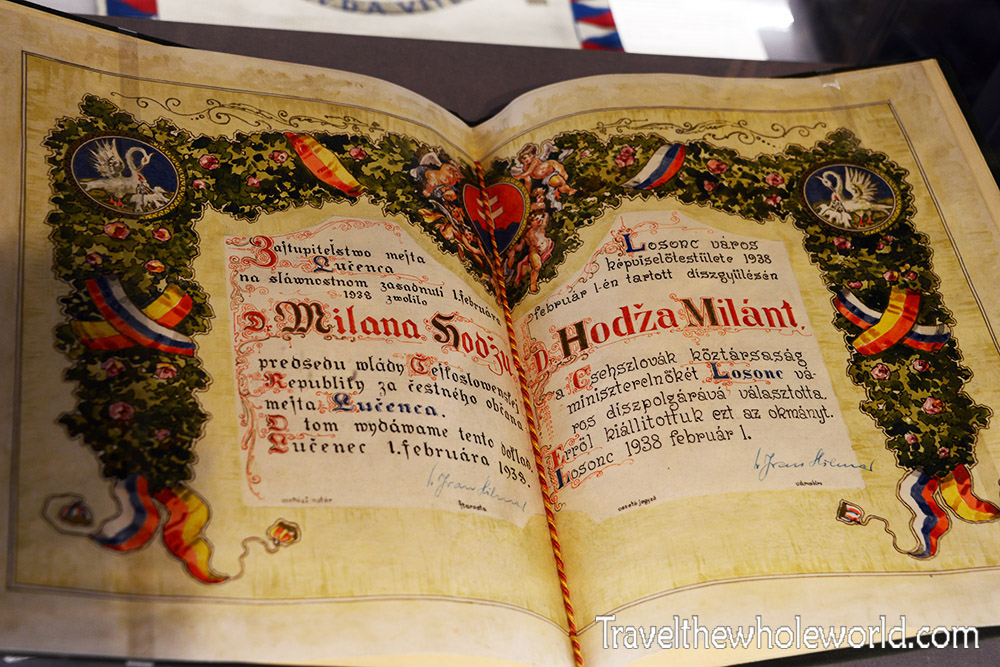 Zastupiteľstwo mesta
Lučenca
na sláwnostnom zasadnutí 1. februára
1938 zwolilo
Dr Milana Hodžu
predsedu wlády Československej
Republiky za čestného občana
mesta Lučenca.
O tom wydáwame tento doklad.
Lučenec 1. februára 1938.
Starosta
Losonc város
képviselőtestülete 1938
február 1-én tartott diszgyülésén
D. Hodža Milánt,
a Csehszlovák köztársaság
miniszterelnökét Losonc vá-
ros diszpolgárává választotta.
Erről kiállitottuk ezt az okmányt.
Losonc 1938 február 1.
vezető jegyző
városbiró
Travelthewholeworld.com